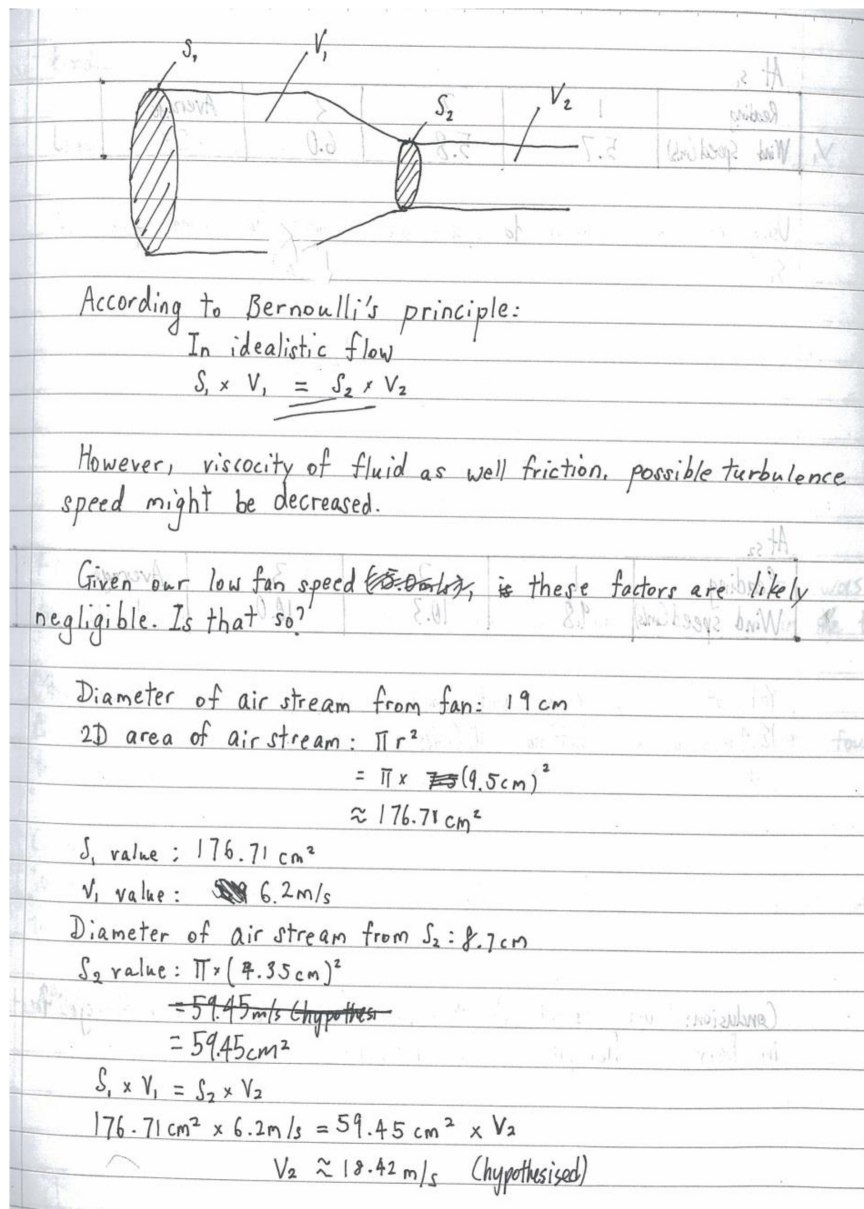 S₁
V₁
S₂
V₂
According to Bernoulli's principle:
In idealistic flow
S₁ × V₁ = S₂ × V₂
However, viscocity of fluid as well friction, possible turbulence
speed might be decreased.
Given our low fan speed these factors are likely
negligible. Is that so?
Diameter of air stream from fan: 19 cm
2D area of air stream: πr²
= π × (9.5cm)²
≈ 176.71 cm²
S₁ value: 176.71 cm²
V₁ value: 6.2m/s
Diameter of air stream from S₂: 8.7cm
S₂ value: π×(4.35cm)²
= 59.45 m/s (hypothesi
= 59.45cm²
S₁ × V₁ = S₂ × V₂
176.71 cm² × 6.2m/s = 59.45 cm² × V₂
V₂ ≈ 18.42 m/s (hypothesised)